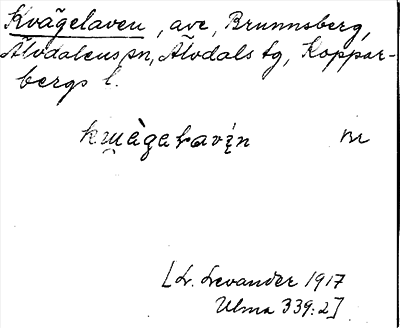 Kvågelaven, ave, Brunnsberg,
Älvdalens sn, Älvdals tg, Koppar-
bergs l.
Br
[L. Levander 1917
Ulma 339:2]